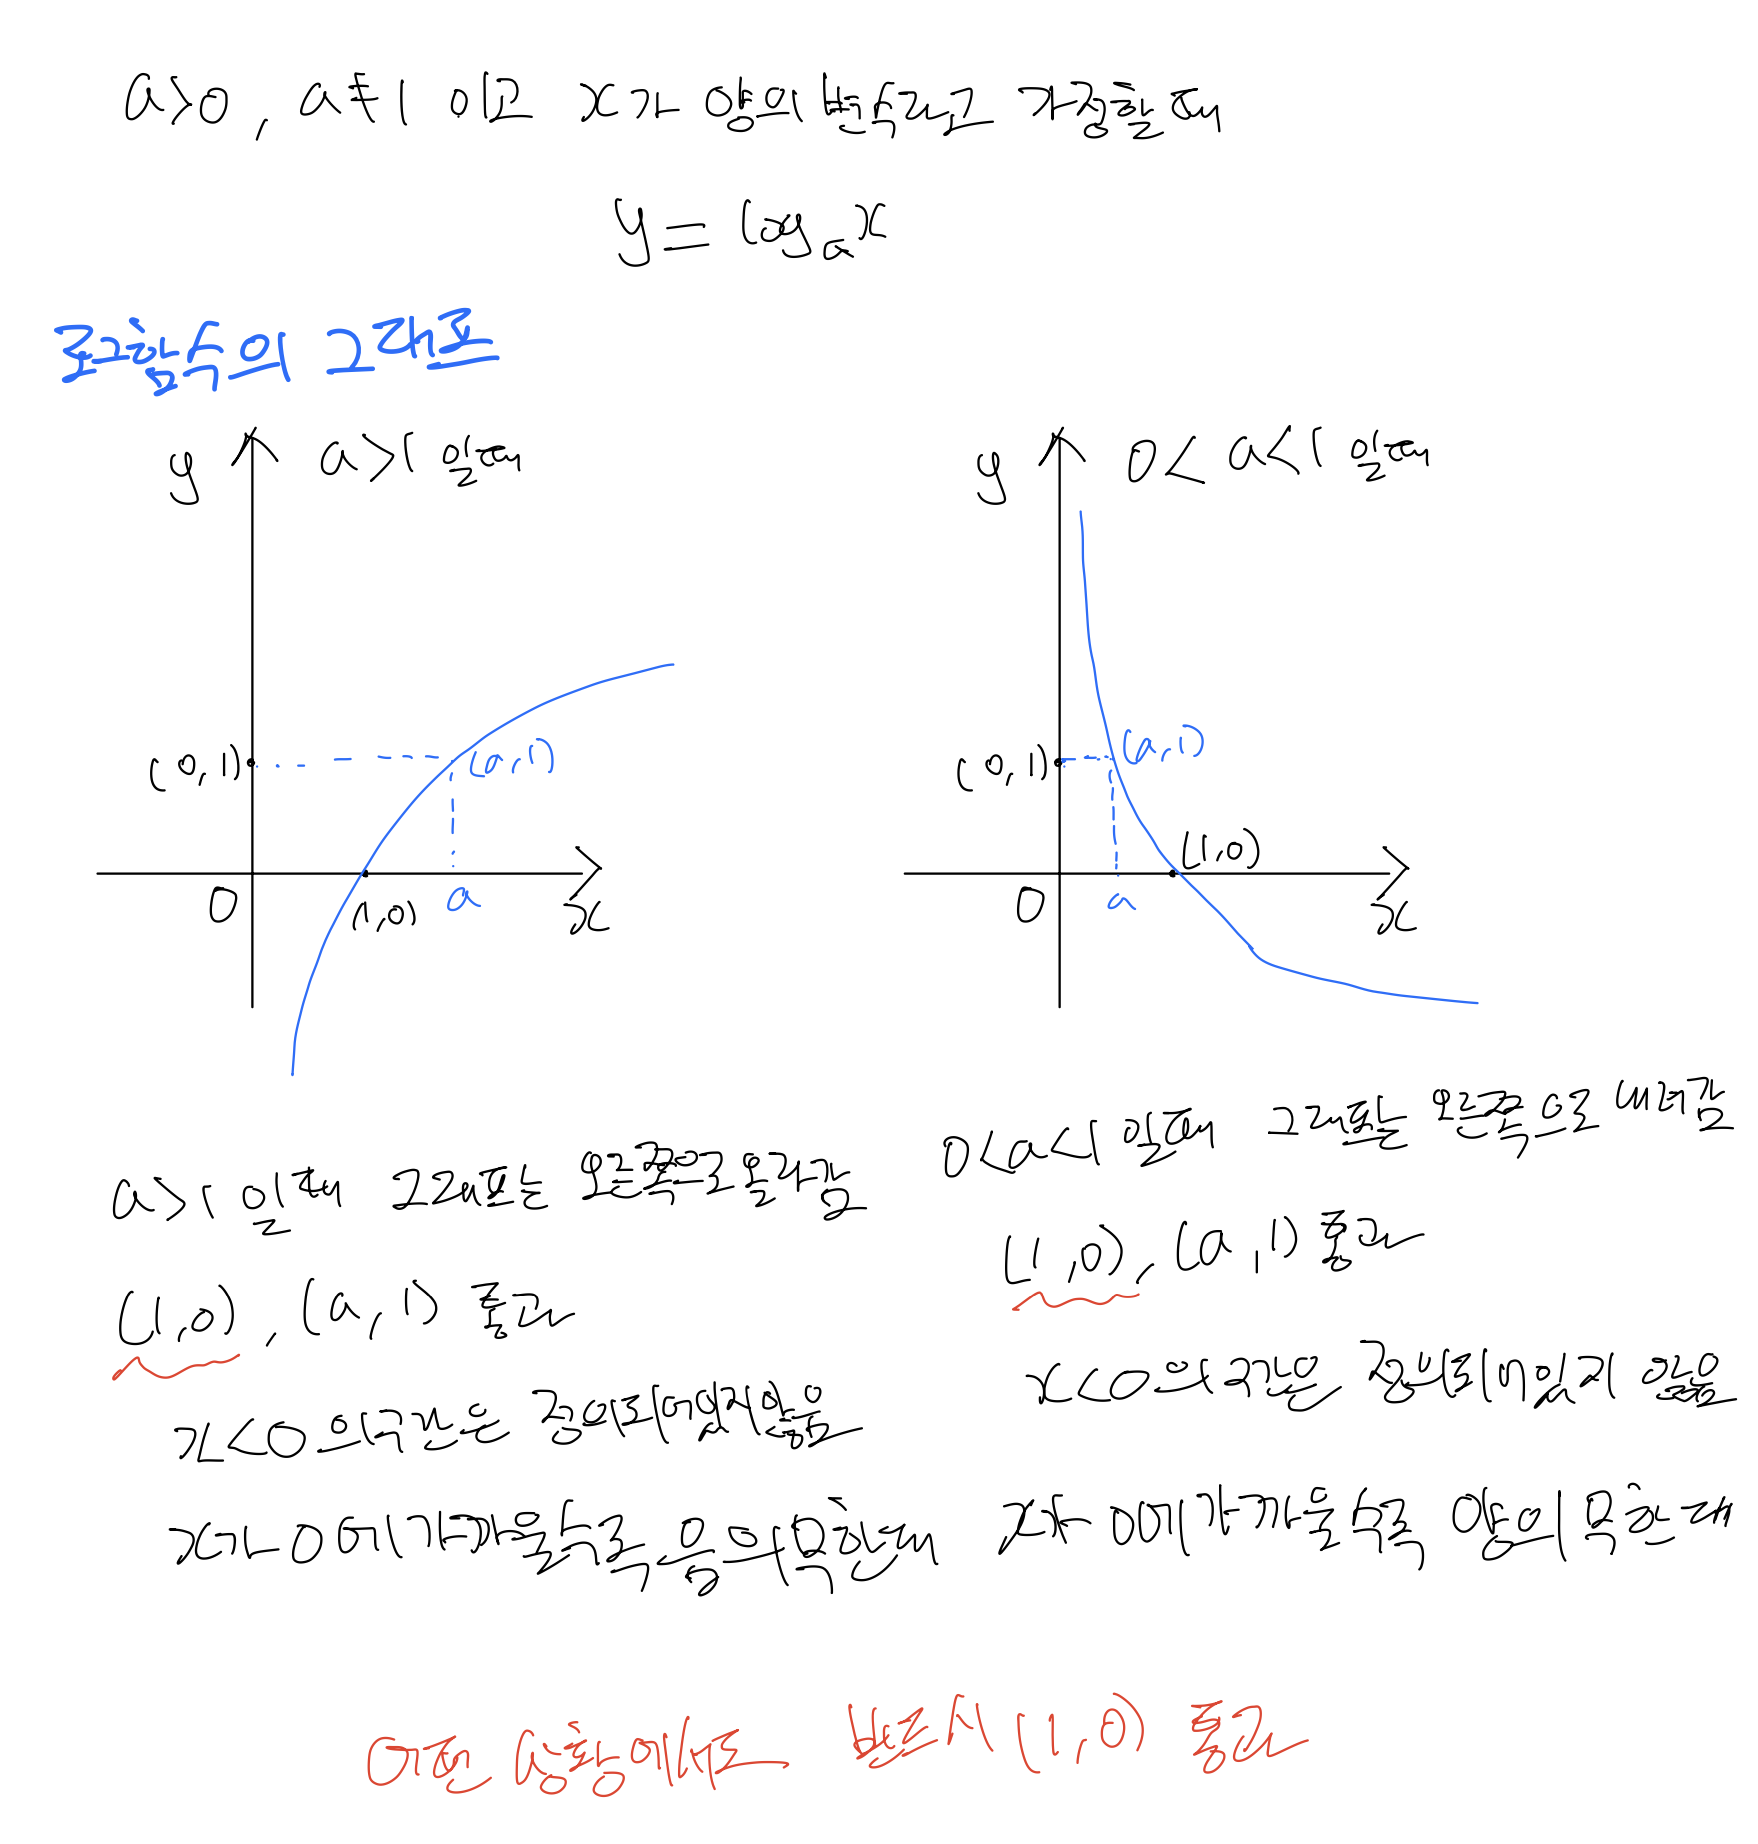 a>0, a≠1 이고 x가 양의 변수라고 가정할 때
y = logₐx
로그함수의 그래프
y
a>1 일 때
(0,1)
(a,1)
0
(1,0)
a
x
y
0<a<1 일 때
(0,1)
(a,1)
(1,0)
0
a
x
a>1 일 때 그래프는 오른쪽으로 올라감
(1,0), (a,1) 통과
x<0의 구간은 정의되어있지 않음
x가 0에 가까울수록 음의 무한대
0<a<1 일 때 그래프는 오른쪽으로 내려감
(1,0), (a,1) 통과
x<0의 구간은 정의되어있지 않음
x가 0에 가까울수록 양의 무한대
어떤 상황에서도 반드시 (1,0) 통과